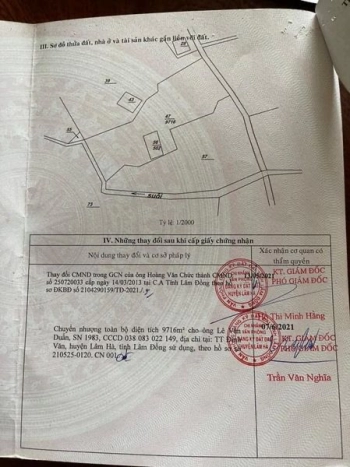 III. Sơ đồ thửa đất, nhà ở và tài sản khác gắn liền với đất.
SUỐI
Tỷ lệ 1/2000
IV. Những thay đổi sau khi cấp giấy chứng nhận
Nội dung thay đổi và cơ sở pháp lý
Xác nhận cơ quan có
thẩm quyền
Thay đổi CMND trong GCN của ông Hoàng Văn Chức thành CMND
số 250720033 cấp ngày 14/03/2013 tại C.A Tỉnh Lâm Đồng theo
số ĐKBĐ số 2104290159/TD-2021
KT. GIÁM ĐỐC
PHÓ GIÁM ĐỐC
Thị Minh Hằng
Chuyển nhượng toàn bộ diện tích 9716m² cho ông Lê Văn
Duẩn, SN 1983, CCCD 038 083 022 149, địa chỉ tại: TT Đinh
Văn, huyện Lâm Hà, tỉnh Lâm Đồng sử dụng, theo hồ sơ
210525-0120. CN 001
07/6/2021
KT. GIÁM ĐỐC
PHÓ GIÁM ĐỐC
Trần Văn Nghĩa